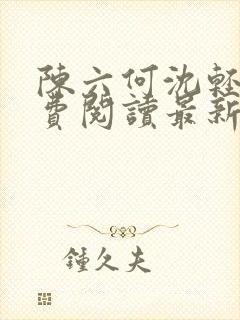 陳六何沈輕
費閱讀最新
鍾久夫